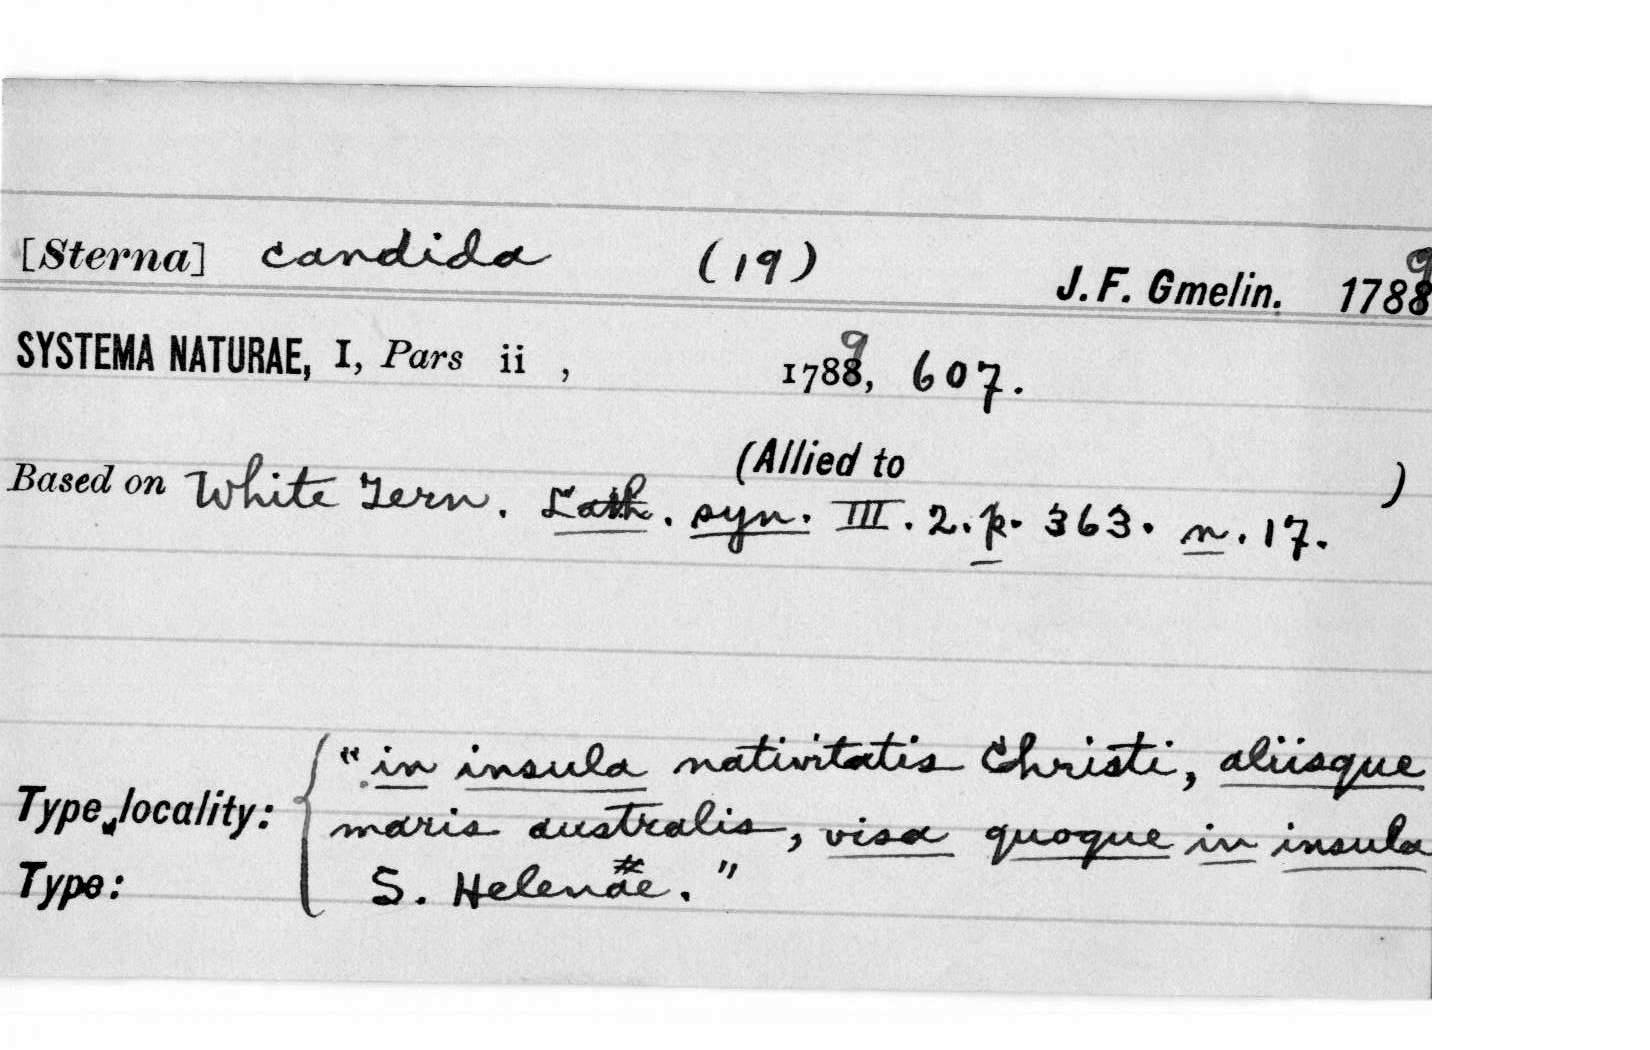 [Sterna] candida (19) J. F. Gmelin. 1789
SYSTEMA NATURAE, I, Pars ii , 1789, 607.
(Allied to )
Based on White Tern. Lath. syn. III. 2. p. 363. n. 17.
"in insula nativitatis Christi, aliisque
Type locality: maris australis, visa quoque in insula
Type: S. Helenae."